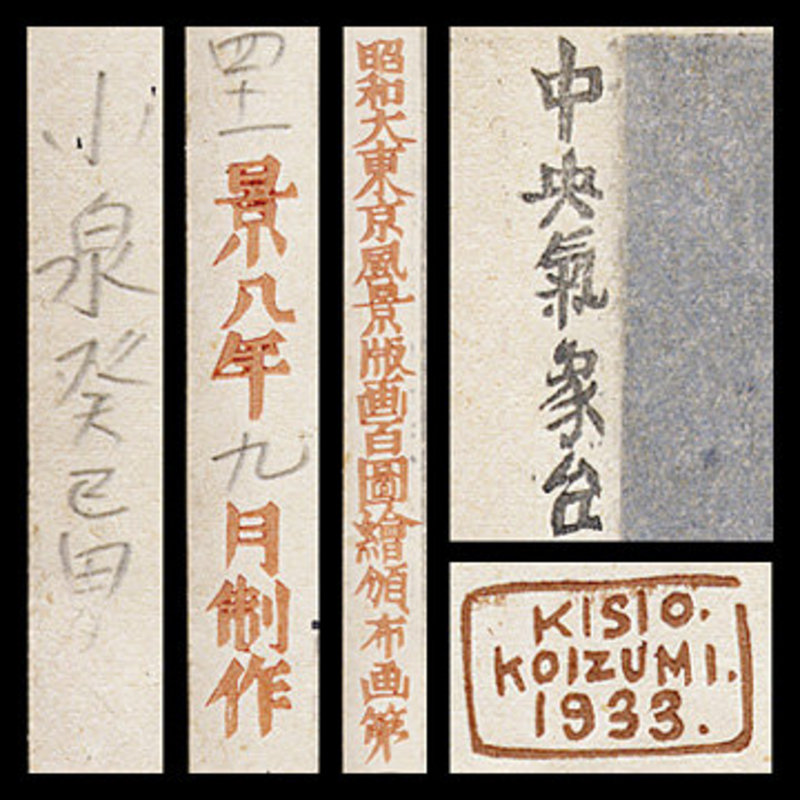 中央氣象台
昭和大東京風景版画百圖繪頒布画第
四十一景八年九月制作
小泉癸巳男
KISIO.
KOIZUMI.
1933.